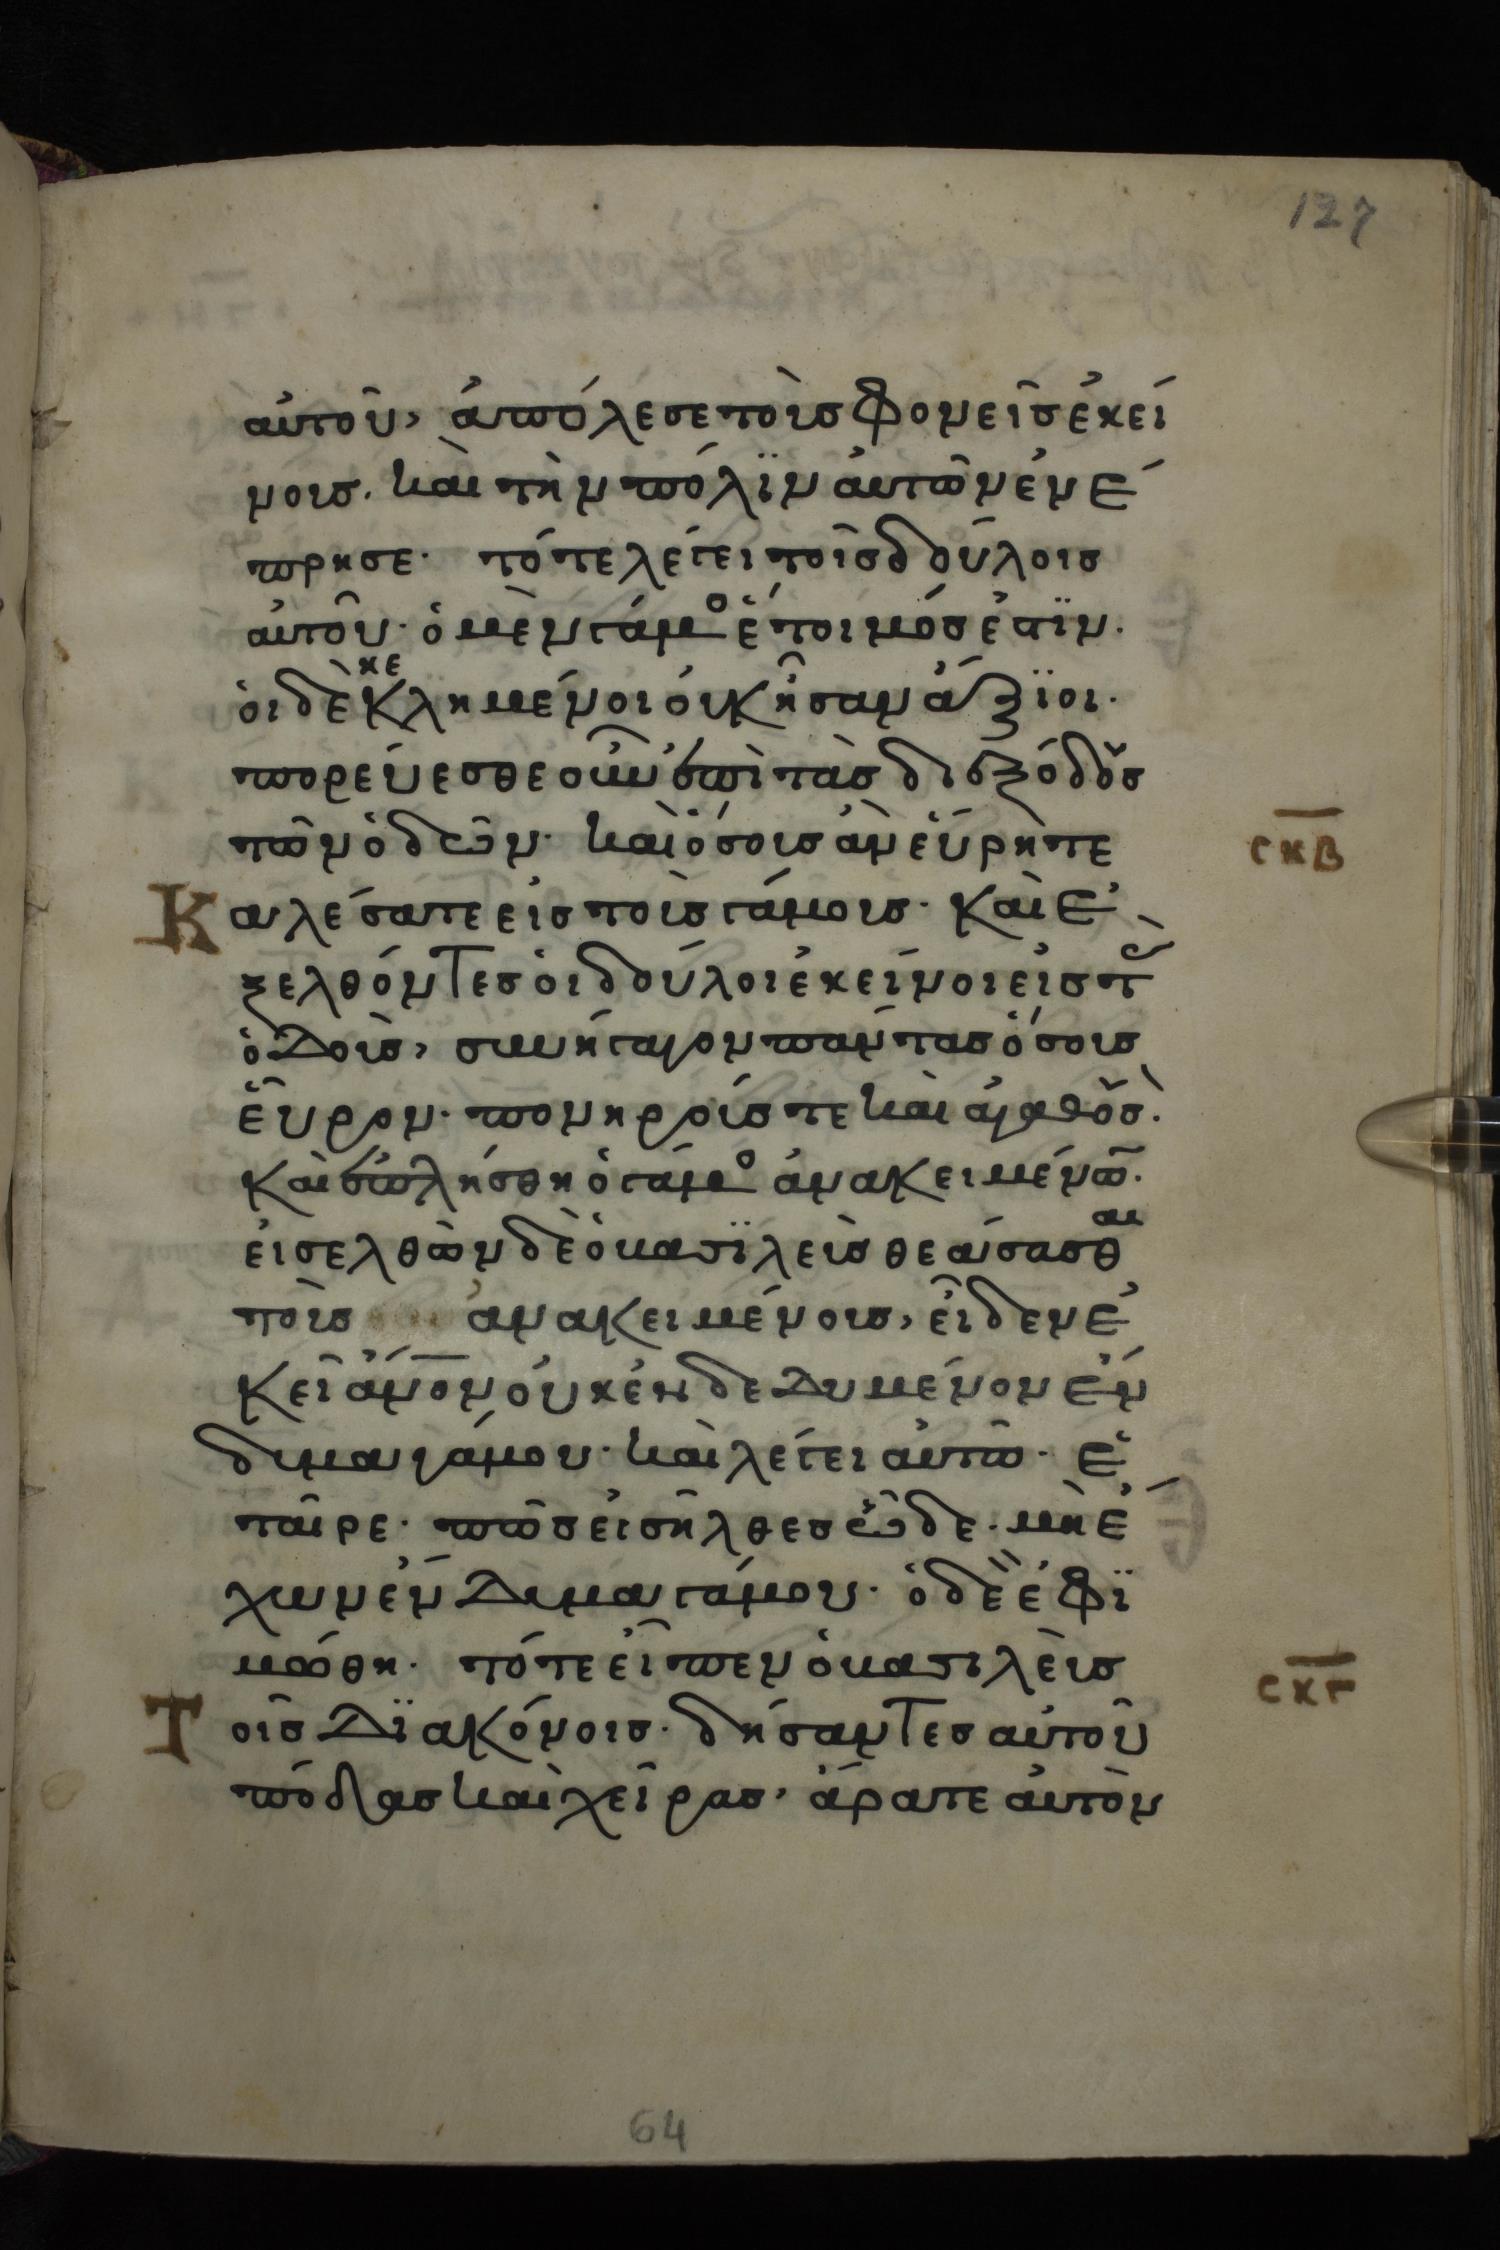 127
αὐτοῦ, ἀπώλεσε τοὺς φονεῖς ἐκεί
νους. καὶ τὴν πόλϊν αὐτῶν ἐνέ
πρησε· τότε λέγει τοῖς δούλοις
αὐτοῦ· ὁ μὲν γάμο ἕτοιμός ἐστϊν.
οἱ δὲ κεκλημένοι οὐκ ἦσαν ἄξϊοι.
πορεύεσθε οὖν ἐπὶ τὰς διεξόδους
τῶν ὁδῶν· καὶ ὅσους ἂν εὕρητε
Καλέσατε εἰς τοὺς γάμους· καὶ ἐ
ξελθόντες οἱ δοῦλοι ἐκείνοι εἰς τὰς
ὁδοὺς, συνήγαγον πάντας ὅσους
εὗρον· πονηρούς τε καὶ ἀγαθούς.
καὶ ἐπλήσθη ὁ γάμο ἀνακειμένων.
εἰσελθὼν δὲ ὁ βασϊλεὺς θεάσασθαι
τοὺς ἀνακειμένους, εἶδεν ἐ
κεῖ ἄνον οὐκ ἐνδεδυμένον ἔν
δυμα γάμου· καὶ λέγει αὐτῶ· ἑ
ταῖρε· πῶς εἰσῆλθες ὧδε. μὴ ἔ
χων ἔνδυμα γάμου· ὁ δὲ ἐφϊ
μώθη. τότε εἶπεν ὁ βασιλεὺς
Τοῖς δϊακόνοις· δήσαντες αὐτοῦ
πόδας καὶ χεῖρας, ἄρατε αὐτὸν
σκβ
σκγ
64